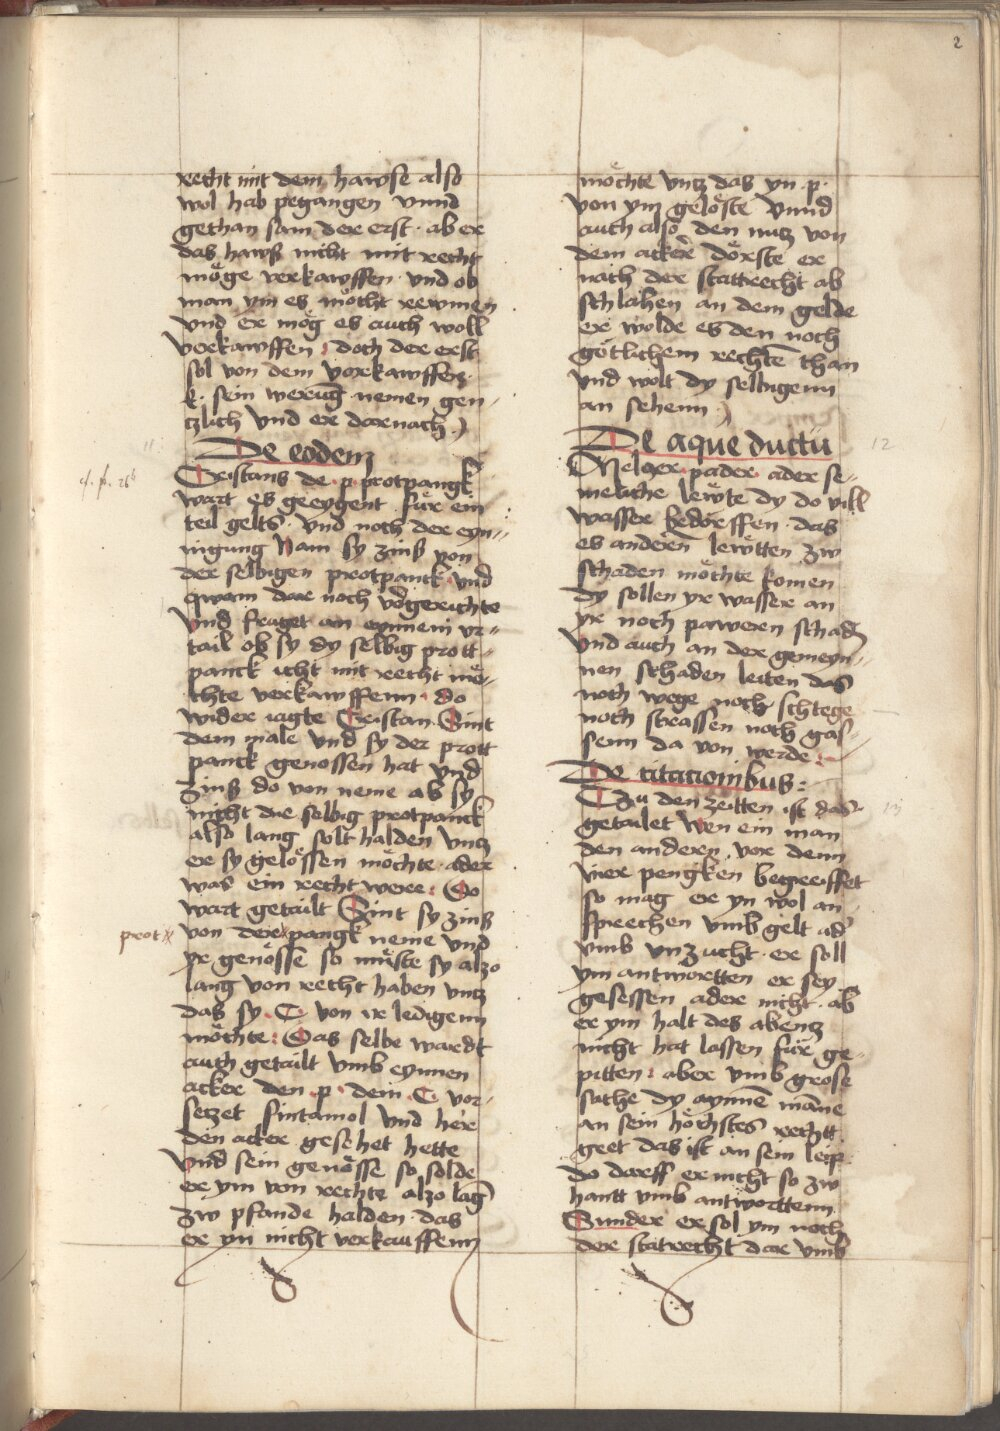 2
recht mit dem hawse also
wol hab pegangen vnnd
gethan sam der erst · aber
das hawß nicht mit recht
möge verkawffen · vnd ob
man ym es möcht rewmen
vnd er mög es auch woll
verkawffen · doch der erst
sol von dem vorkawffen
sein werūg nemen gen-
tzlich vnd er darnach
11
De eodem
Cristans de · p · protpangk
wart es geeygent für ein
teil gelts · vnd noch der eyn-
nigung Nam sy zinß von
der selbigen protpanck · vnd
qwam dar noch vögerichte
vnd fraget an eynnem vr-
tail ob sy dy selbig prott-
panck icht mit recht mö-
chte verkawffenn · do
wider sagte Cristan Sint
dem male vnd sy der prott
panck genossen hat vnd
zinß do von neme ab sy
nicht die selbig protpanck
also lang solt halden vntz
er sy gelössen möchte · ader
was ein recht were : Do
wart getailt Sint sy zinß
prot
von der pangk neme vnd
yr genösse so müste sy alzo
lang von recht haben vntz
das sy · C · von ir ledigenn
möchte : Das selbe wardt
auch getailt vmb eynnen
acker den · p · dem · C · vor-
setzet sintamol vnd here
den acker gesehet hette
vnd sein genösse so solde
er ym von rechte alzo lāg
zw pfande halden · das
er yn nicht verkauffenn
möchte vntz das yn · p ·
von ym gelöste vnnd
auch also den nutz von
dem acker dörste er
nach der stattrecht ab
schlahen an dem gelde
er wolde es den noch
götlichem rechtē than
vnd wolt dy selbigenn
an sehenn
De aque ductu
12
Melczer pader ader se-
meliche lewte dy do vill
wasser bedörffen · das
es anderen lewtten zw
schaden möchte komen
dy sollen yr wasser an
yr noch pawern schadē
vnd auch an der gemeyn-
nen schaden leiten das
noch wege noch schtege
noch strassen noch gas-
senn da von werde :
De citacionibus :
Czu den zeitten ist das
getailet Wen ein man
den anderen vor denn
vier pengken begreiffet
so mag er yn wol an-
sprechen vmb gelt ad'
vmb vnzucht · er soll
ym antwortten er sey
gesessen ader nicht · ab
er ym halt des abentz
nicht hat lassen für ge-
pitten : aber vmb grose
sache dy aynnē māne
an sein höchstes rechtt
geet das ist an sein leip
do darff er nicht so zw
hantt vmb antworttenn
Sunder er sol ym noch
der statrecht dar vmb